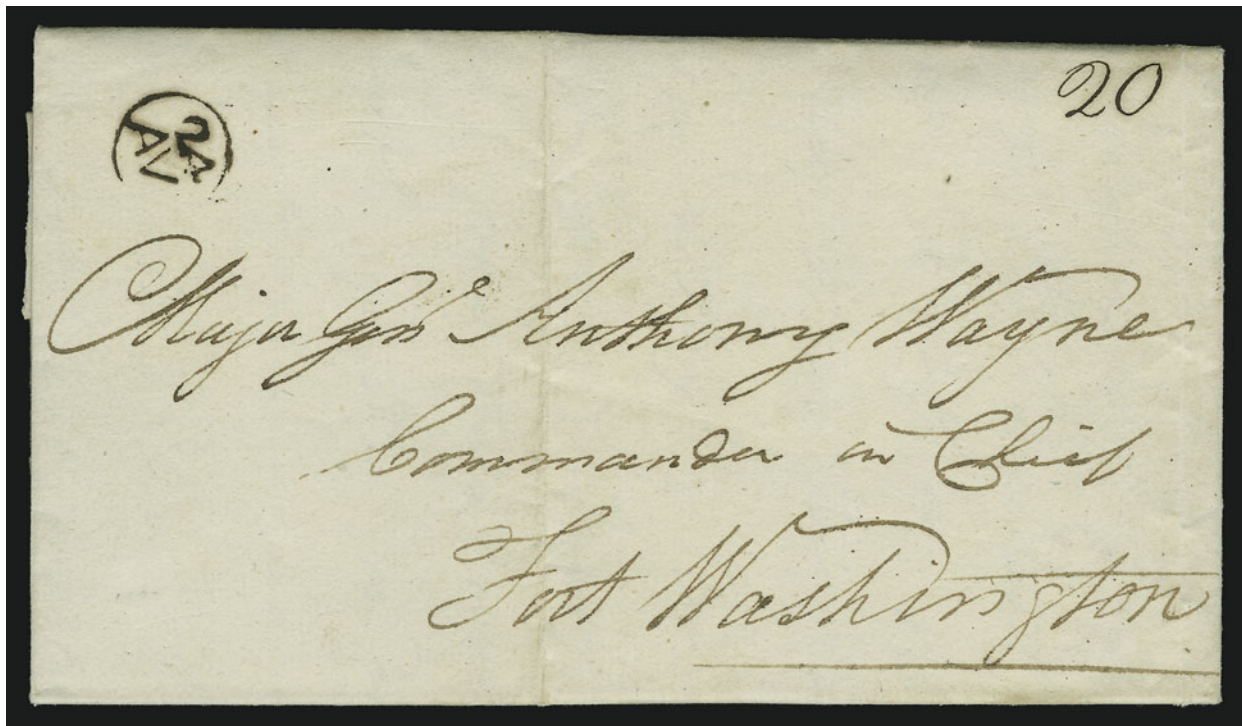 20
24
AV
Major Genl Anthony Wayne
Commander in Chief
Fort Washington